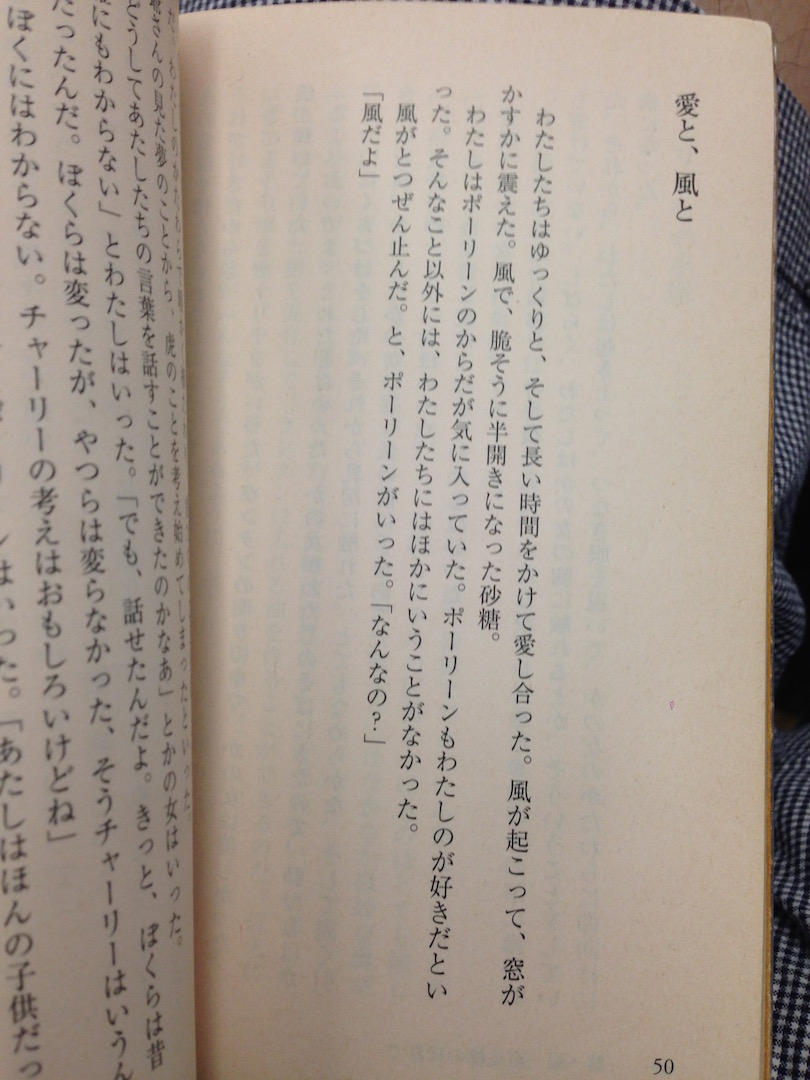 愛と、風と
わたしたちはゆっくりと、そして長い時間をかけて愛し合った。風が起こって、窓が
かすかに震えた。風で、脆そうに半開きになった砂糖。
わたしはポーリーンのからだが気に入っていた。ポーリーンもわたしのが好きだとい
った。そんなこと以外には、わたしたちにはほかにいうことがなかった。
風がとつぜん止んだ。と、ポーリーンがいった。「なんなの?」
「風だよ」
50
さんの見た夢のことから、虎のことを考え始めてしまったといった。
どうしてあたしたちの言葉を話すことができたのかなあ」とかの女はいった。
にもわからない」とわたしはいった。「でも、話せたんだよ。きっと、ぼくらは昔
たったんだ。ぼくらは変ったが、やつらは変らなかった、そうチャーリーはいうん
ぼくにはわからない。チャーリーの考えはおもしろいけどね」
はいった。「あたしはほんの子供だっ